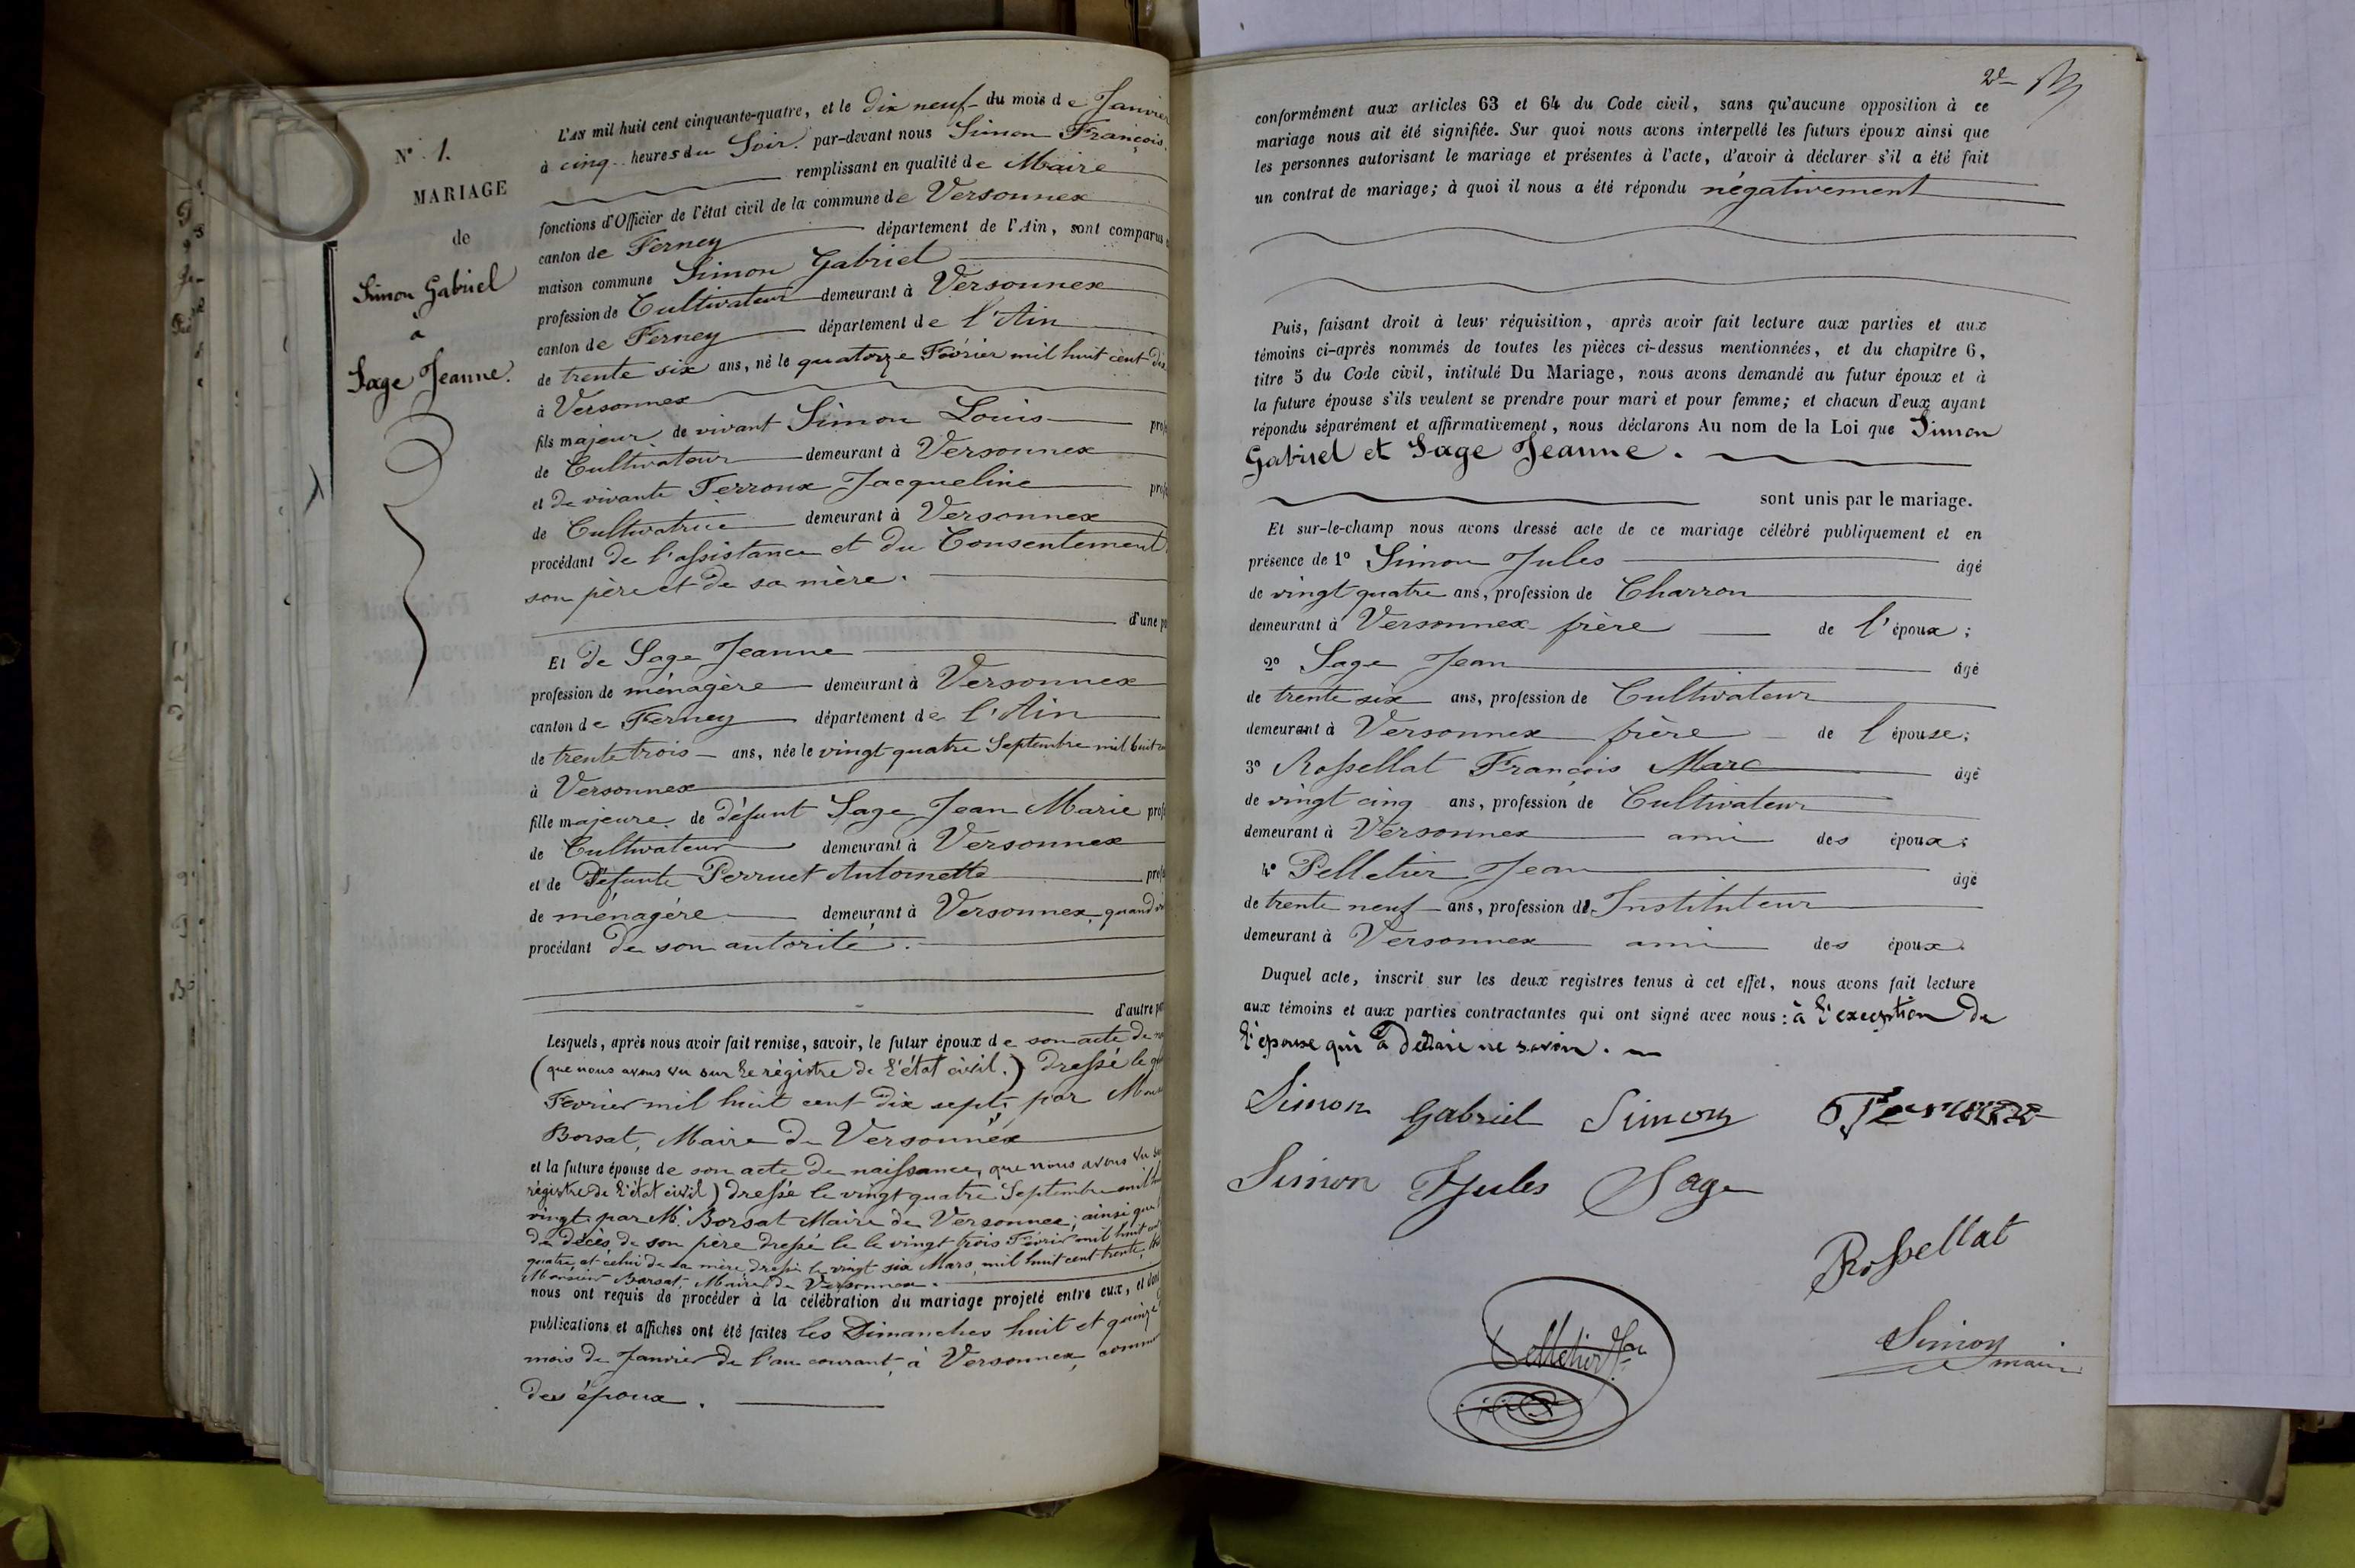 N° 1.
MARIAGE
de
Simon Gabriel
à
Sage Jeanne.
L'AN mil huit cent cinquante-quatre, et le dix neuf du mois de Janvier
à cinq heures du Soir. par-devant nous Simon François.
remplissant en qualité de Maire
fonctions d'Officier de l'état civil de la commune de Versonnex
canton de Ferney département de l'Ain, sont comparus
maison commune Simon Gabriel
profession de Cultivateur demeurant à Versonnex
canton de Ferney département de l'Ain
de trente six ans, né le quatorze Février mil huit cent dix
à Versonnex
fils majeur de vivant Simon Louis
de Cultivateur demeurant à Versonnex
et de vivante Ferroux Jacqueline
de Cultivatrice demeurant à Versonnex
procédant de l'assistance et du Consentement
son père et de sa mère.
d'une
Et de Sage Jeanne
profession de ménagère demeurant à Versonnex
canton de Ferney département de l'Ain
de trente trois ans, née le vingt quatre Septembre mil huit
à Versonnex
fille majeure de défunt Sage Jean Marie
de Cultivateur demeurant à Versonnex
et de défunte Perruet Antoinette
de ménagère demeurant à Versonnex, quand
procédant de son autorité.
d'autre
Lesquels, après nous avoir fait remise, savoir, le futur époux de son acte de
(que nous avons vu sur le régistre de l'état civil.) dressé le
Février mil huit cent dix sept, par
Borsat, Maire de Versonnex
et la future épouse de son acte de naissance, que nous avons vu
régistre de l'état civil) dressé le vingt quatre Septembre mil
vingt par Mr. Borsat Maire de Versonnex; ainsi que
de décès de son père dressé le le vingt trois Février mil huit
quatre, et celui de sa mère dressé le vingt six Mars, mil huit cent trente,
Monsieur Borsat, Maire de Versonnex.
nous ont requis de procéder à la célébration du mariage projeté entre eux, et
publications et affiches ont été faites les Dimanches huit et quinze
mois de Janvier de l'an courant, à Versonnex,
des époux.
2e
conformément aux articles 63 et 64 du Code civil, sans qu'aucune opposition à ce
mariage nous ait été signifiée. Sur quoi nous avons interpellé les futurs époux ainsi que
les personnes autorisant le mariage et présentes à l'acte, d'avoir à déclarer s'il a été fait
un contrat de mariage; à quoi il nous a été répondu négativement
Puis, faisant droit à leur réquisition, après avoir fait lecture aux parties et aux
témoins ci-après nommés de toutes les pièces ci-dessus mentionnées, et du chapitre 6,
titre 5 du Code civil, intitulé Du Mariage, nous avons demandé au futur époux et à
la future épouse s'ils veulent se prendre pour mari et pour femme; et chacun d'eux ayant
répondu séparément et affirmativement, nous déclarons Au nom de la Loi que Simon
Gabriel et Sage Jeanne.
sont unis par le mariage.
Et sur-le-champ nous avons dressé acte de ce mariage célébré publiquement et en
présence de 1° Simon Jules âgé
de vingt quatre ans, profession de Charron
demeurant à Versonnex frère de l'époux;
2° Sage Jean âgé
de trente six ans, profession de Cultivateur
demeurant à Versonnex frère de l épouse;
3° Rossellat François Marc âgé
de vingt cinq ans, profession de Cultivateur
demeurant à Versonnex ami des époux;
4° Pelletier Jean âgé
de trente neuf ans, profession de Instituteur
demeurant à Versonnex ami des époux.
Duquel acte, inscrit sur les deux registres tenus à cet effet, nous avons fait lecture
aux témoins et aux parties contractantes qui ont signé avec nous: à l'exception de
l'épouse qui a déclaré ne savoir.
Simon Gabriel Simon Ferroux
Simon Jules Sage
Rossellat
Pelletier Jean
Simon
maire